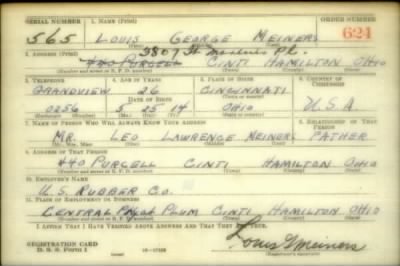 SERIAL NUMBER 1. NAME (Print) ORDER NUMBER
565 LOUIS GEORGE MEINERS 624
(First) (Middle) (Last)
2. ADDRESS (Print) 3507 St. Pl.
440 PURCELL CINTI HAMILTON OHIO
(Number and street or R. F. D. number) (Town) (County) (State)
3. TELEPHONE 4. AGE IN YEARS 5. PLACE OF BIRTH 6. COUNTRY OF CITIZENSHIP
GRANDVIEW 26 CINCINNATI
DATE OF BIRTH
0256 5 25 14 OHIO U.S.A
(Exchange) (Number) (Mo.) (Day) (Yr.) (State or country)
7. NAME OF PERSON WHO WILL ALWAYS KNOW YOUR ADDRESS 8. RELATIONSHIP OF THAT PERSON
MR. LEO LAWRENCE MEINERS FATHER
(Mr., Mrs., Miss) (First) (Middle) (Last)
9. ADDRESS OF THAT PERSON
440 PURCELL CINTI HAMILTON OHIO
(Number and street or R. F. D. number) (Town) (County) (State)
10. EMPLOYER'S NAME
U.S. RUBBER CO.
11. PLACE OF EMPLOYMENT OR BUSINESS
CENTRAL PLUM CINTI HAMILTON OHIO
(Number and street or R. F. D. number) (Town) (County) (State)
I AFFIRM THAT I HAVE VERIFIED ABOVE ANSWERS AND THAT THEY ARE TRUE.
REGISTRATION CARD
D. S. S. Form 1 Louis G Meiners
(Registrant's signature)